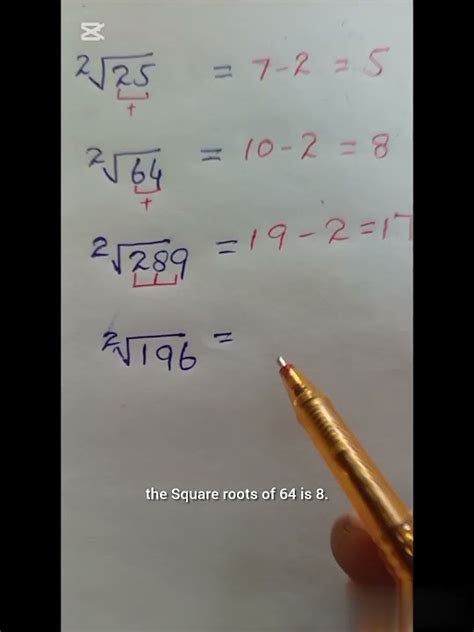 ²√25 = 7-2 = 5
+
²√64 = 10-2 = 8
+
²√289 = 19-2=17
²√196 =
the Square roots of 64 is 8.